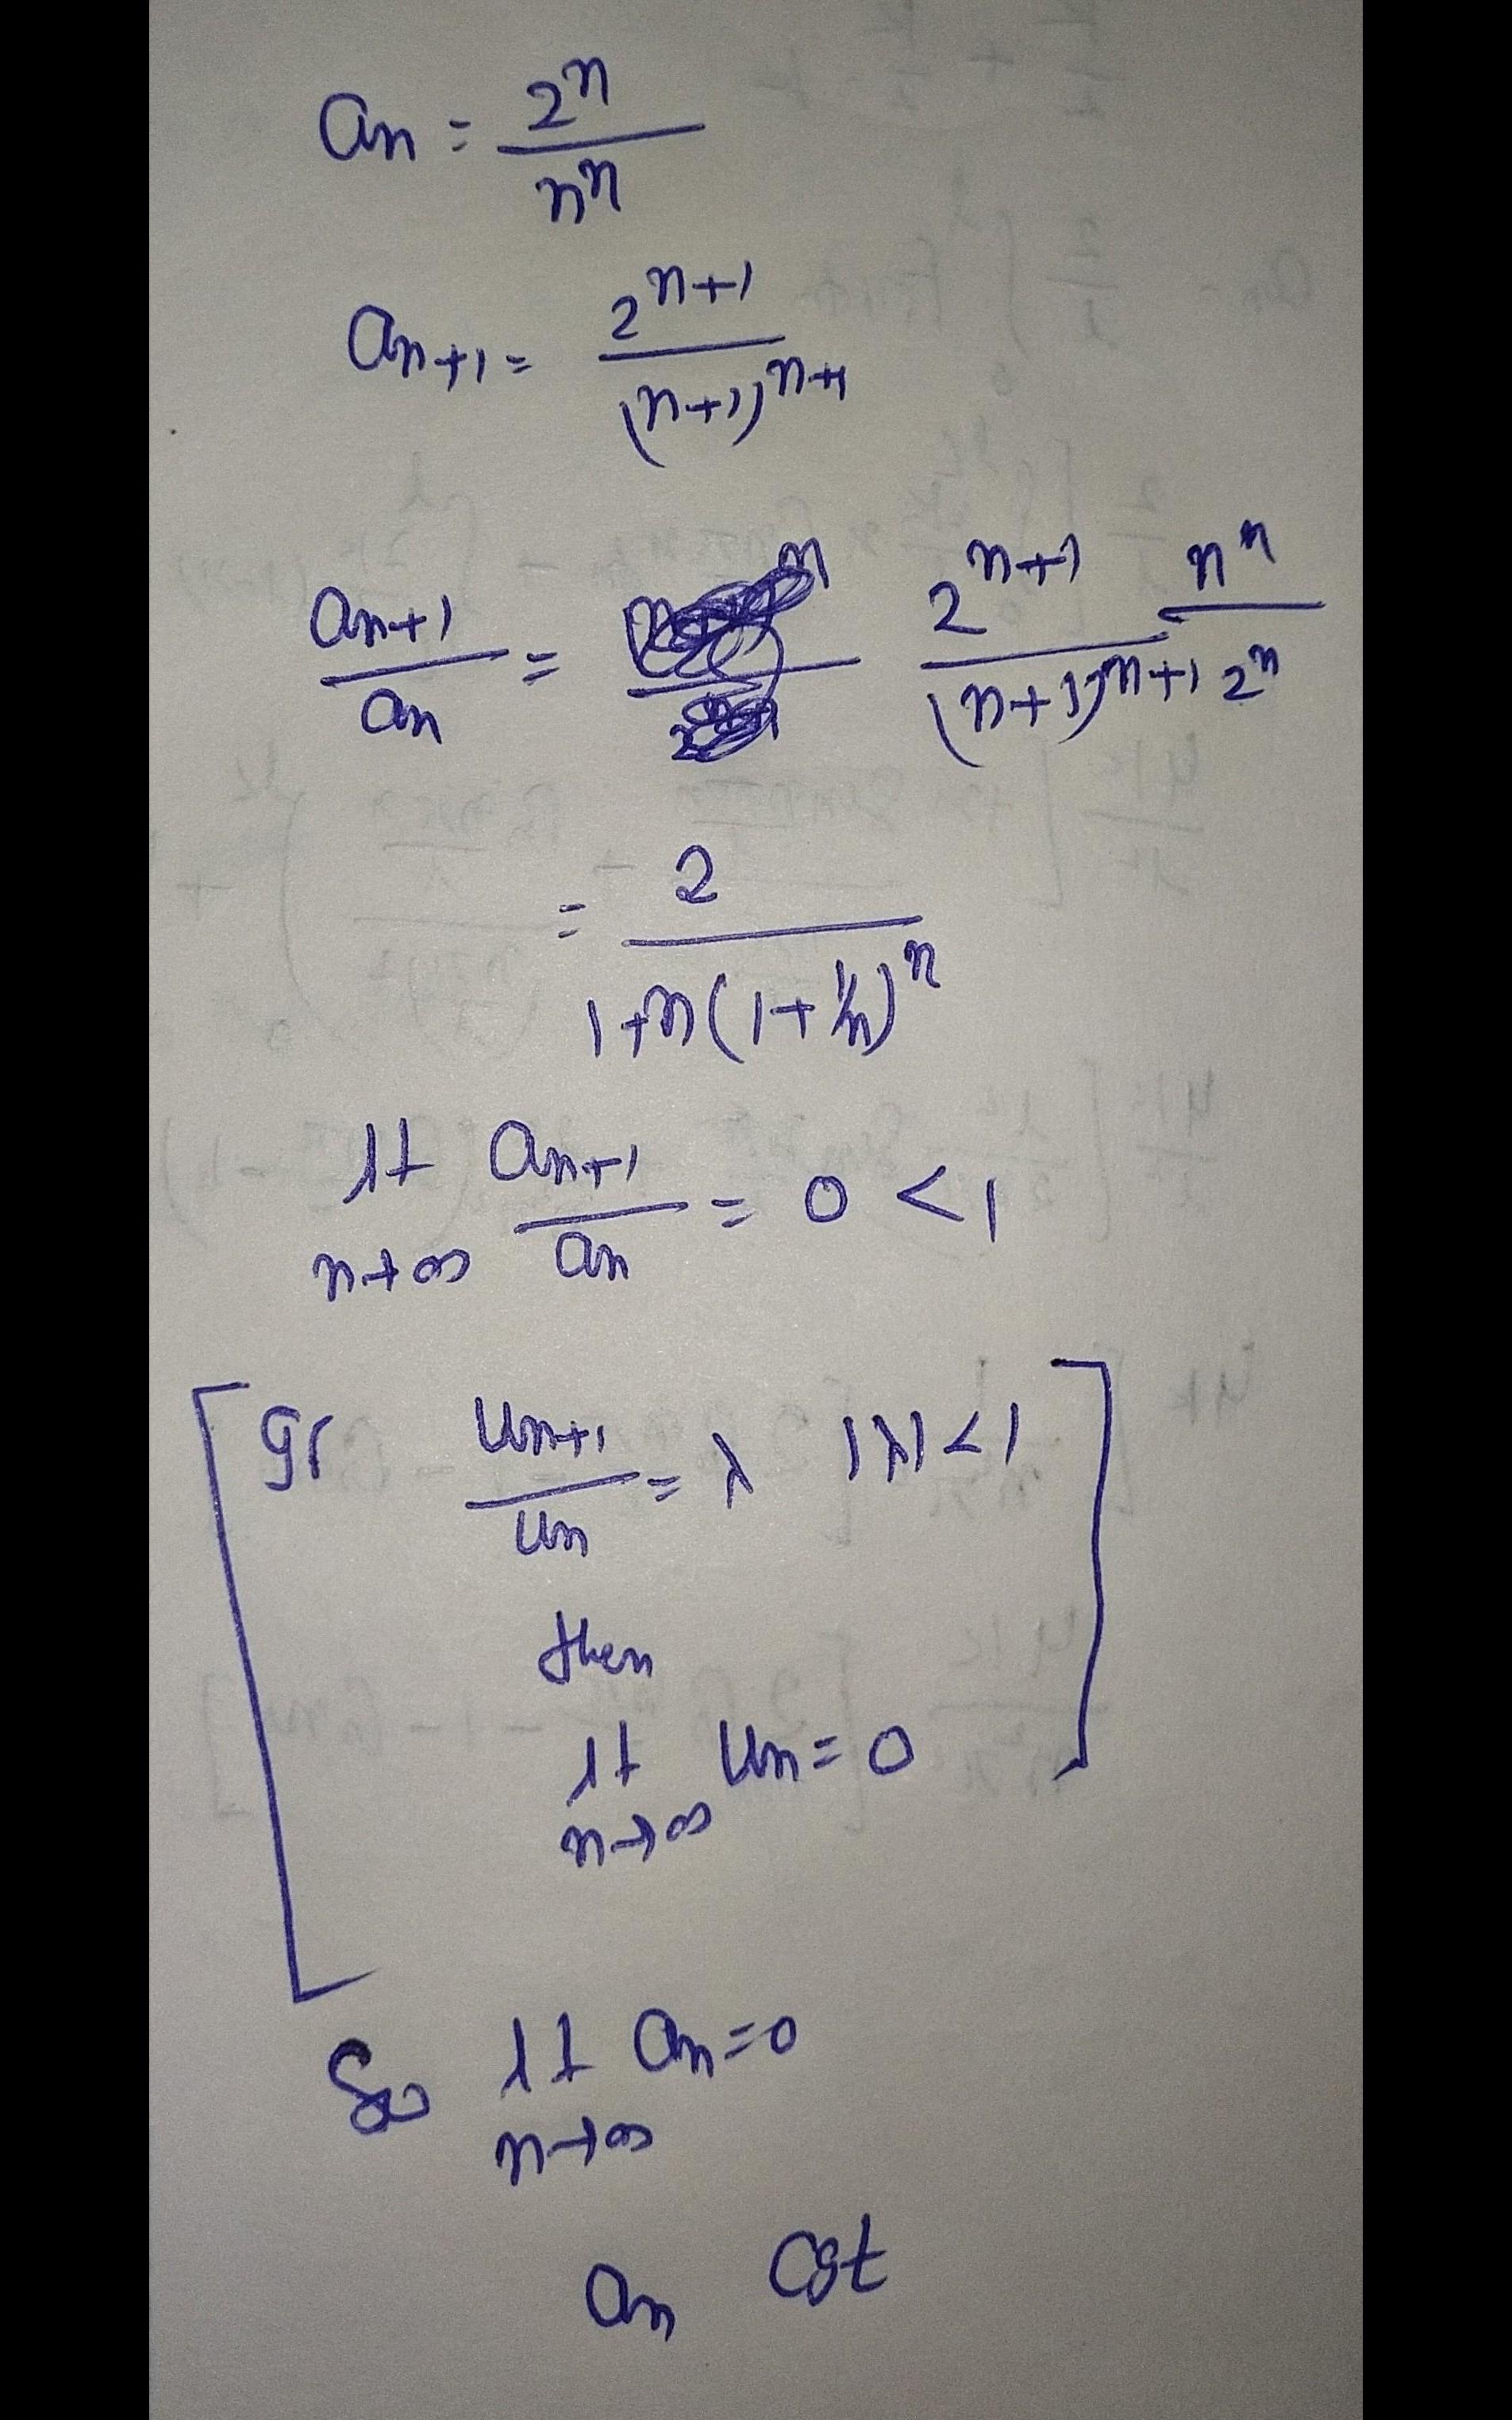 an = 2^n / n^n
an+1 = 2^n+1 / (n+1)^n+1
an+1 / an = 2^n+1 / (n+1)^n+1 n^n / 2^n
= 2 / 1+n(1+1/n)^n
lt n→∞ an+1 / an = 0 < 1
[ gf un+1 / un = λ |λ|<1 ]
then
lt n→∞ Un = 0
So lt n→∞ an = 0
an Cgt